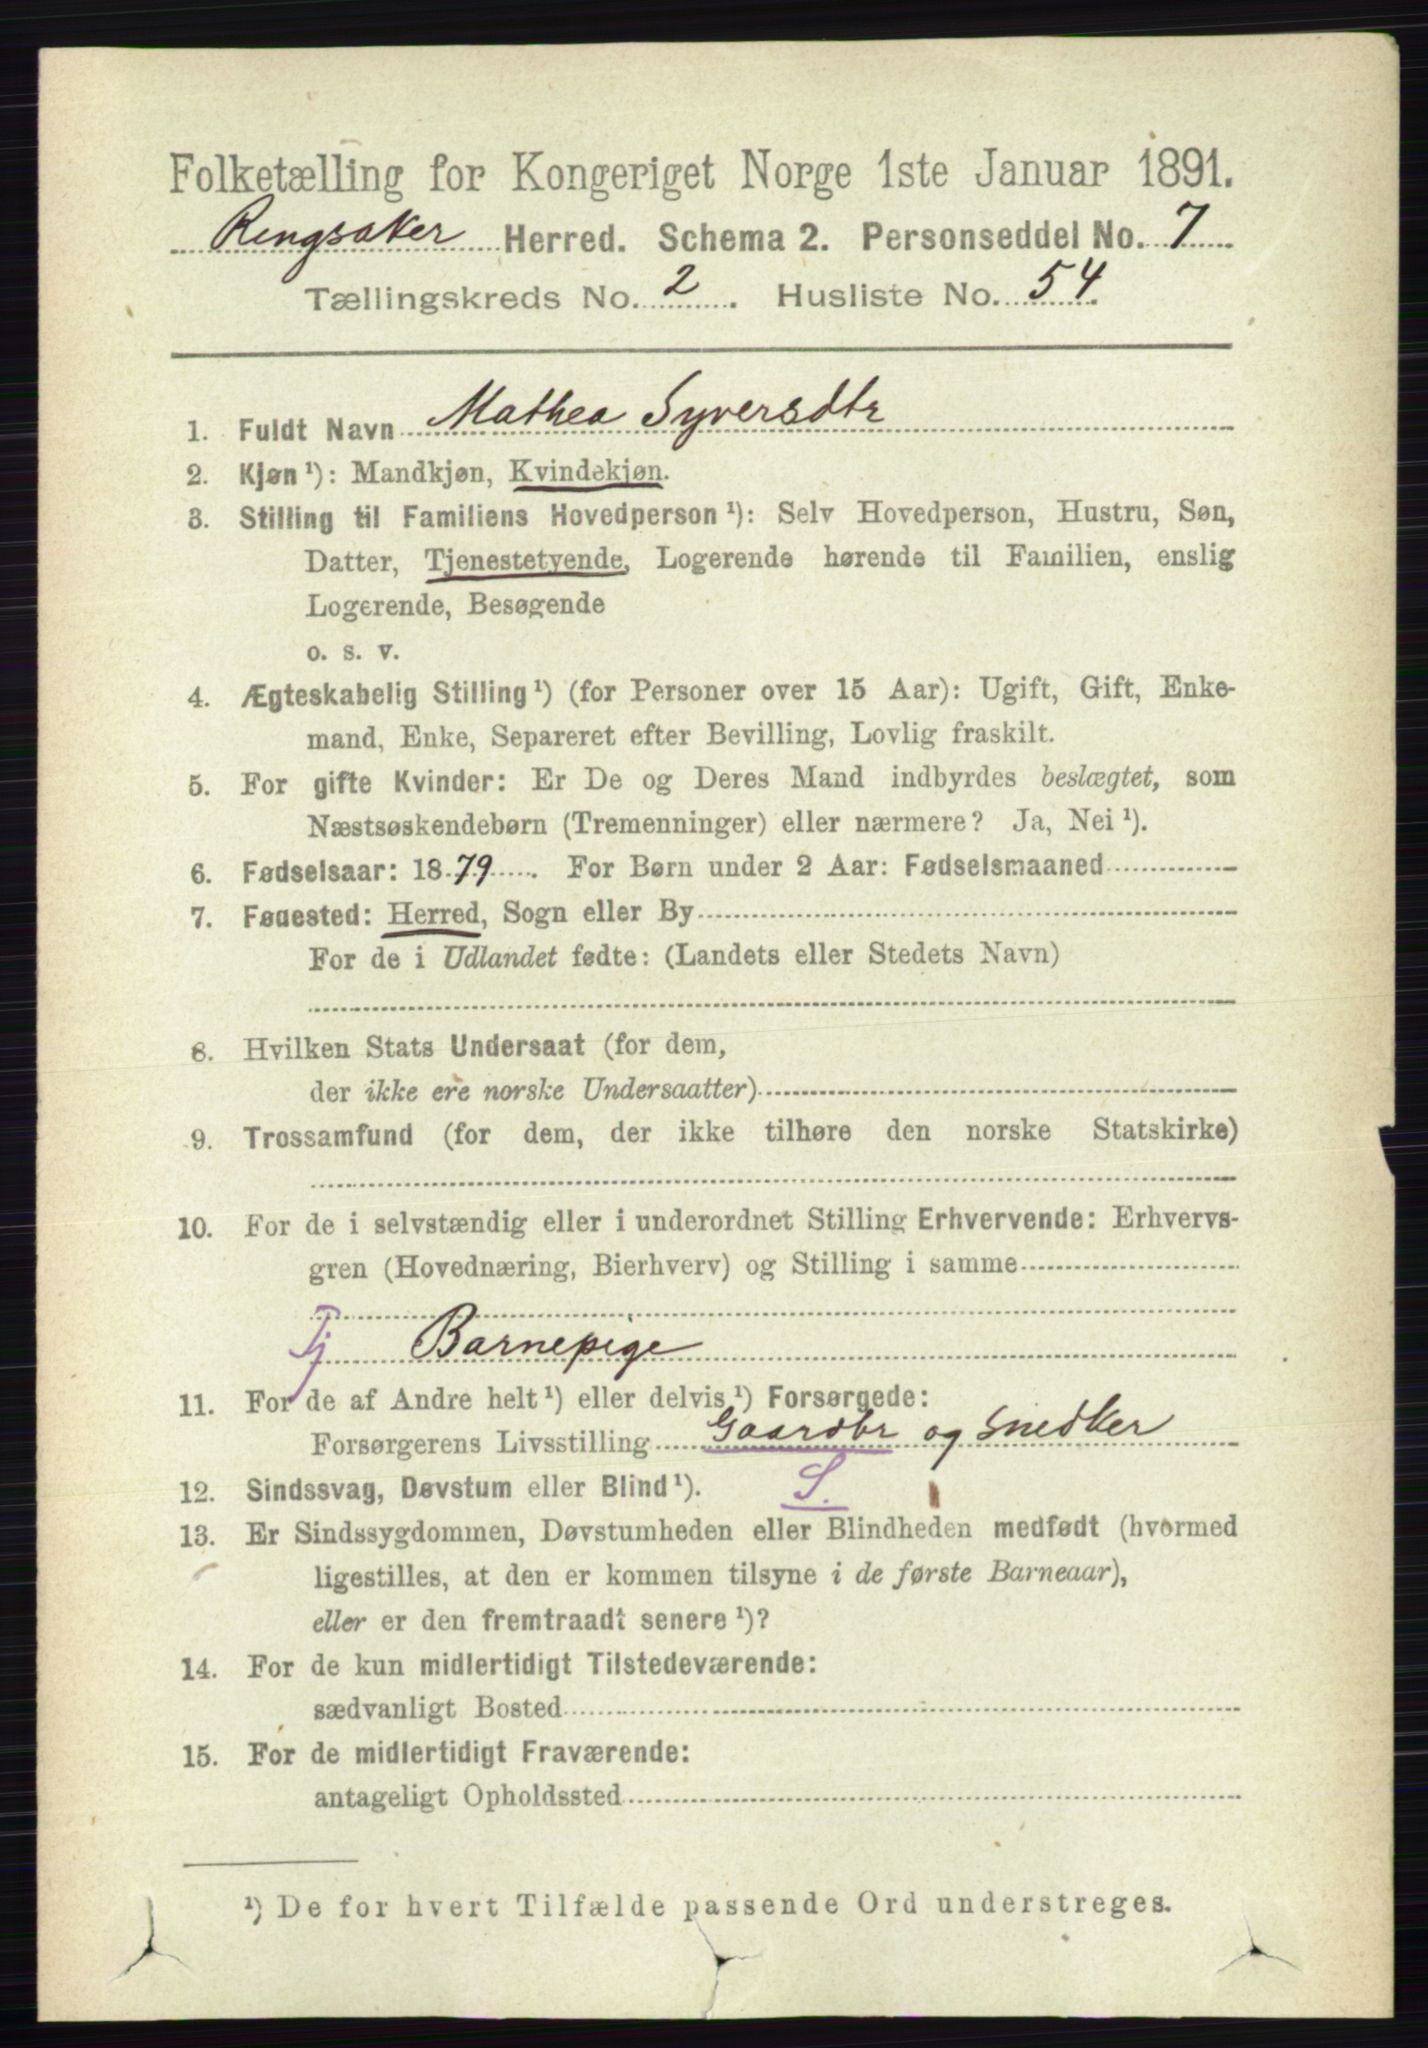 Folketælling for Kongeriget Norge 1ste Januar 1891.
Ringsaker Herred. Schema 2. Personseddel No. 7
Tællingskreds No. 2. Husliste No. 54.
1. Fuldt Navn Mathea Syversdtr
2. Kjøn ¹): Mandkjøn, Kvindekjøn.
3. Stilling til Familiens Hovedperson ¹): Selv Hovedperson, Hustru, Søn,
Datter, Tjenestetyende, Logerende hørende til Familien, enslig
Logerende, Besøgende
o. s. v.
4. Ægteskabelig Stilling ¹) (for Personer over 15 Aar): Ugift, Gift, Enke-
mand, Enke, Separeret efter Bevilling, Lovlig fraskilt.
5. For gifte Kvinder: Er De og Deres Mand indbyrdes beslægtet, som
Næstsøskendebørn (Tremenninger) eller nærmere? Ja, Nei ¹).
6. Fødselsaar: 1879. For Børn under 2 Aar: Fødselsmaaned
7. Fødested: Herred, Sogn eller By
For de i Udlandet fødte: (Landets eller Stedets Navn)
8. Hvilken Stats Undersaat (for dem,
der ikke ere norske Undersaatter)
9. Trossamfund (for dem, der ikke tilhøre den norske Statskirke)
10. For de i selvstændig eller i underordnet Stilling Erhvervende: Erhvervs-
gren (Hovednæring, Bierhverv) og Stilling i samme
Tj Barnepige
11. For de af Andre helt ¹) eller delvis ¹) Forsørgede:
Forsørgerens Livsstilling Gaardbr og Snedker
12. Sindssvag, Døvstum eller Blind ¹). S.
13. Er Sindssygdommen, Døvstumheden eller Blindheden medfødt (hvormed
ligestilles, at den er kommen tilsyne i de første Barneaar),
eller er den fremtraadt senere ¹)?
14. For de kun midlertidigt Tilstedeværende:
sædvanligt Bosted
15. For de midlertidigt Fraværende:
antageligt Opholdssted
¹) De for hvert Tilfælde passende Ord understreges.